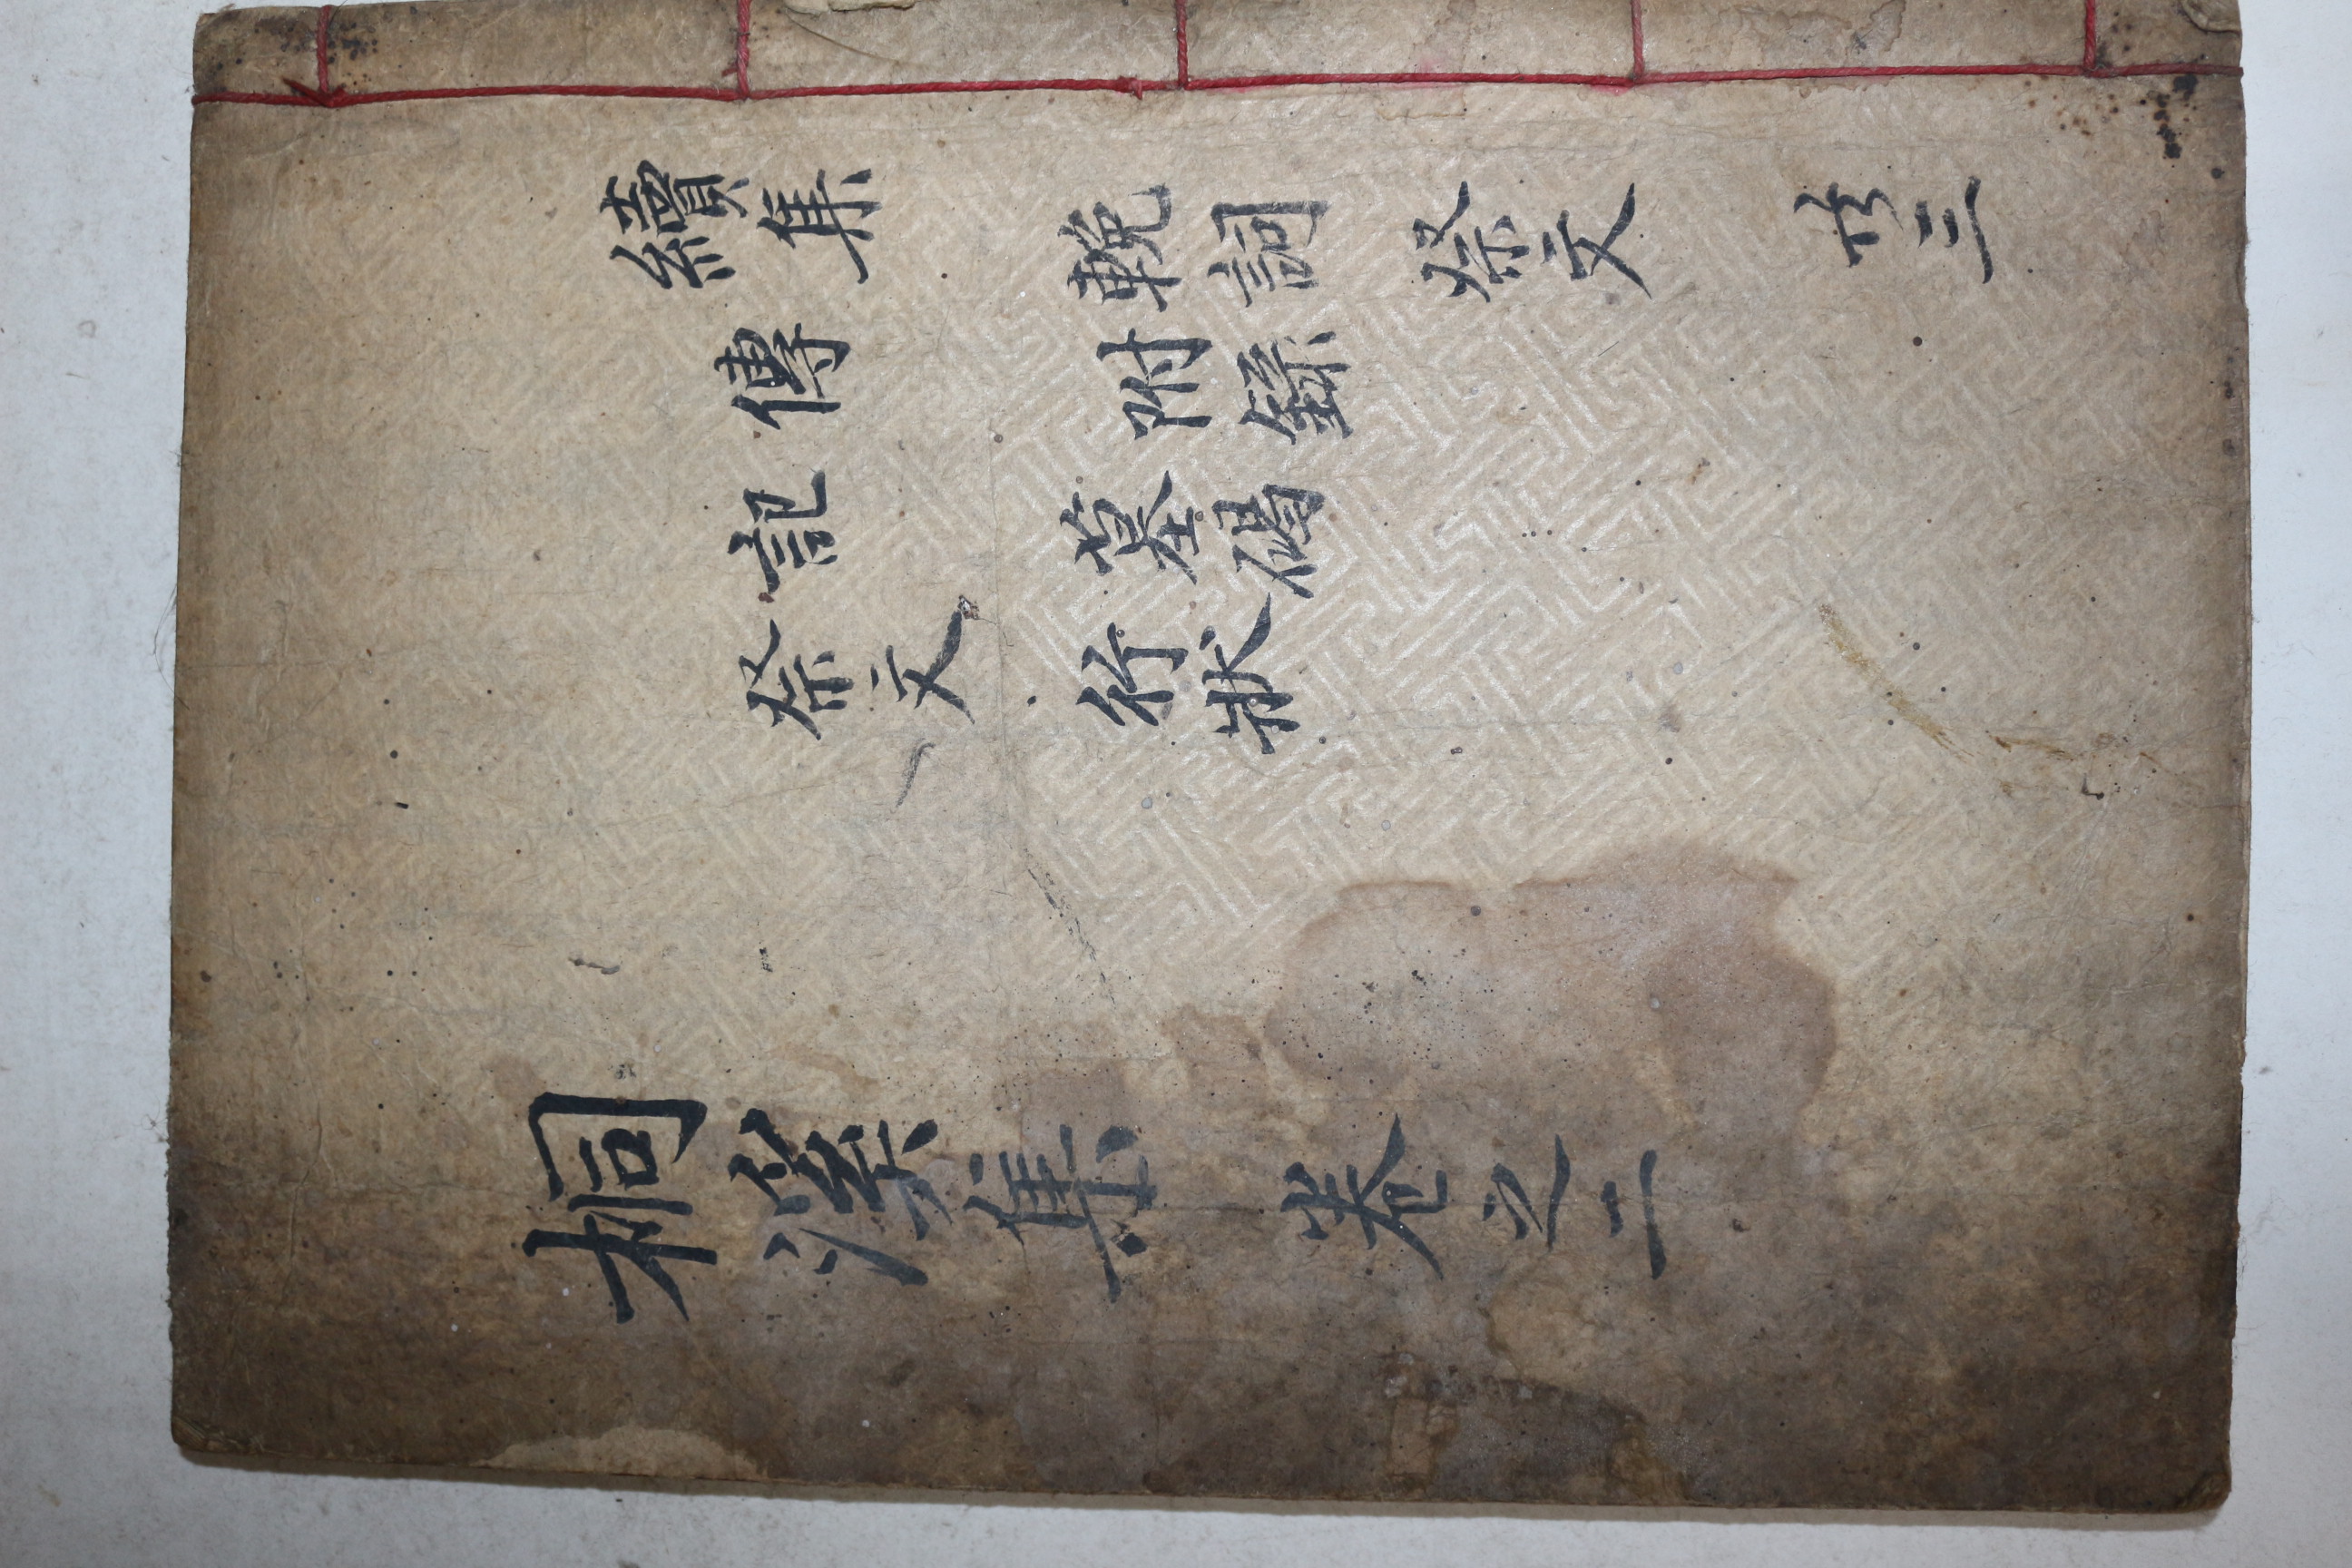 桐溪集 卷之二
續集 輓詞 祭文 共三
傳 附錄
記 墓碣
祭文 行狀